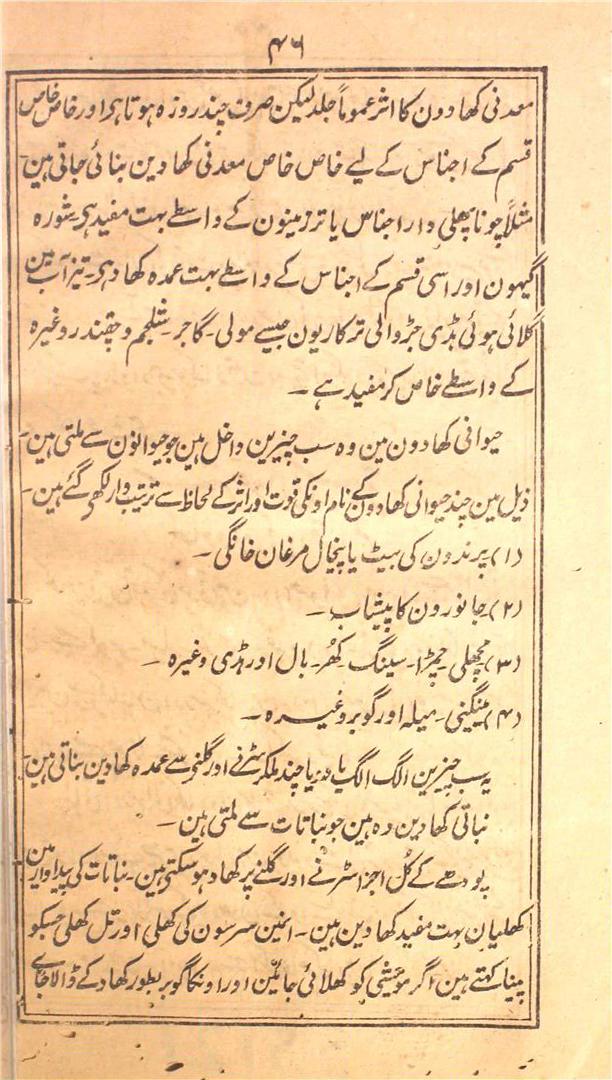 ۴۶
معدنی کھادون کا اثر عموماً جلد لیکن صرف چند روزہ ہوتا ہی اور خاص خاص
قسم کے اجناس کے لیے خاص خاص معدنی کھادین بنائی جاتی ہین
مثلاً چونا پھلی دار اجناس یا تر زمینون کے واسطے بہت مفید ہی۔ شورہ
گیہون اور اسی قسم کے اجناس کے واسطے بہت عمدہ کھاد ہی۔ تیزآب مین
گلائی ہوئی ہڈی جڑ والی ترکاریون جیسے مولی۔ گاجر۔ شلجم و چقندر وغیرہ
کے واسطے خاص کر مفید ہے ۔
حیوانی کھادون مین وہ سب چیزین داخل ہین جو حیوانون سے ملتی ہین۔
ذیل مین چند حیوانی کھادون کے نام اونکی قوت اور اثر کے لحاظ سے ترتیب وار لکھی گئے ہین۔
(۱) پرندون کی بیٹ یا پنجال مرغان خانگی ۔
(۲) جانورون کا پیشاب ۔
(۳) مچھلی چمڑا۔ سینگ کھر۔ بال اور ہڈی وغیرہ ۔
(۴) مینگنی۔ میلہ اور گوبر وغیرہ ۔
یہ سب چیزین الگ الگ یا دو یا چند ملکر سڑنے اور گلنے سے عمدہ کھادین بناتی ہین۔
نباتی کھادین وہ ہین جو نباتات سے ملتی ہین ۔
پودھے کے کل اجزا سڑنے اور گلنے پر کھاد ہو سکتی ہین۔ نباتات کی پیداوار مین
کھلیان بہت مفید کھادین ہین۔ انمین سرسون کی کھلی اور تل کھلی جسکو
پینا کہتے ہین اگر مویشی کو کھلائی جائین اور اونکا گوبر بطور کھاد کے ڈالا جائے